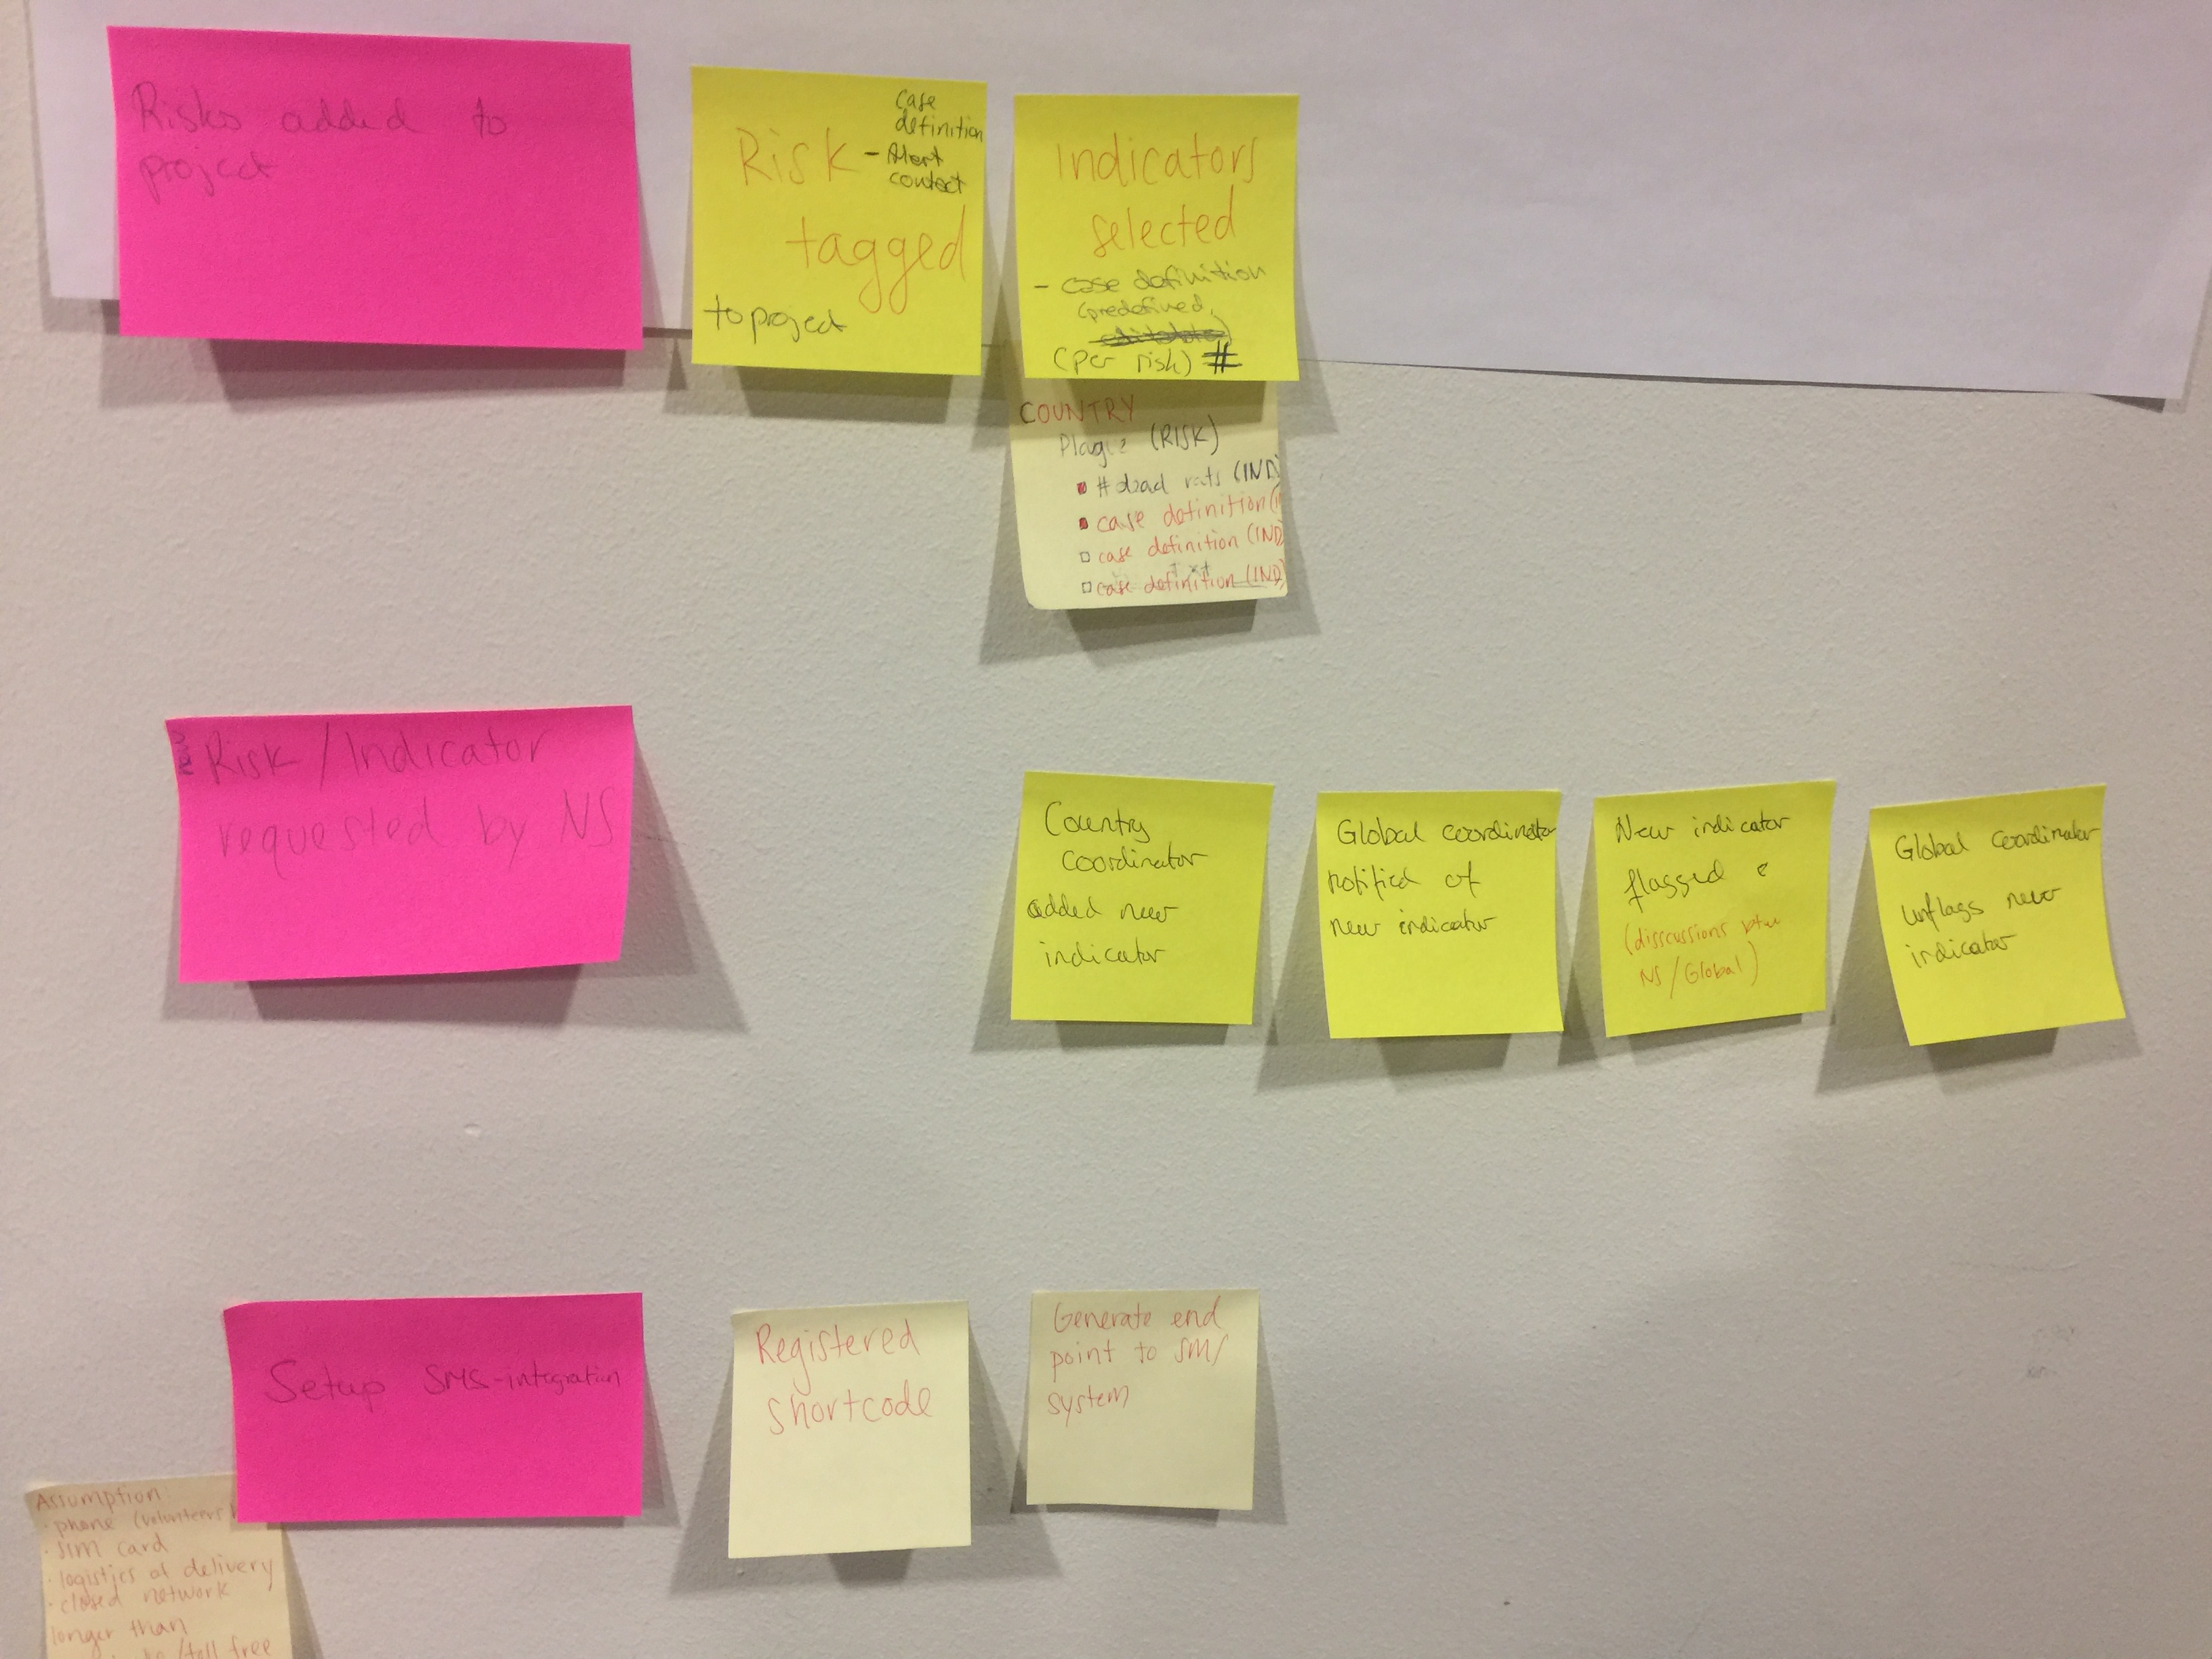 Risks added to
project
Risk
case
definition
- Alert
contact
tagged
to project
Indicators
selected
- case definition
(predefined,
(per risk) #
COUNTRY
Plague (RISK)
# dead rats (IND)
case definition (
case definition (IND)
case definition (IND)
Risk / Indicator
requested by NS
Country
Coordinator
added new
indicator
Global coordinator
notified of
new indicator
New indicator
flagged
(disscussions btw
NS/Global)
Global coordinator
unflags new
indicator
Setup SMS-integration
Registered
shortcode
Generate end
point to SMS
system
Assumption
· phone (volunteers
· SIM card
· logistics of delivery
· closed network
longer than
/toll free